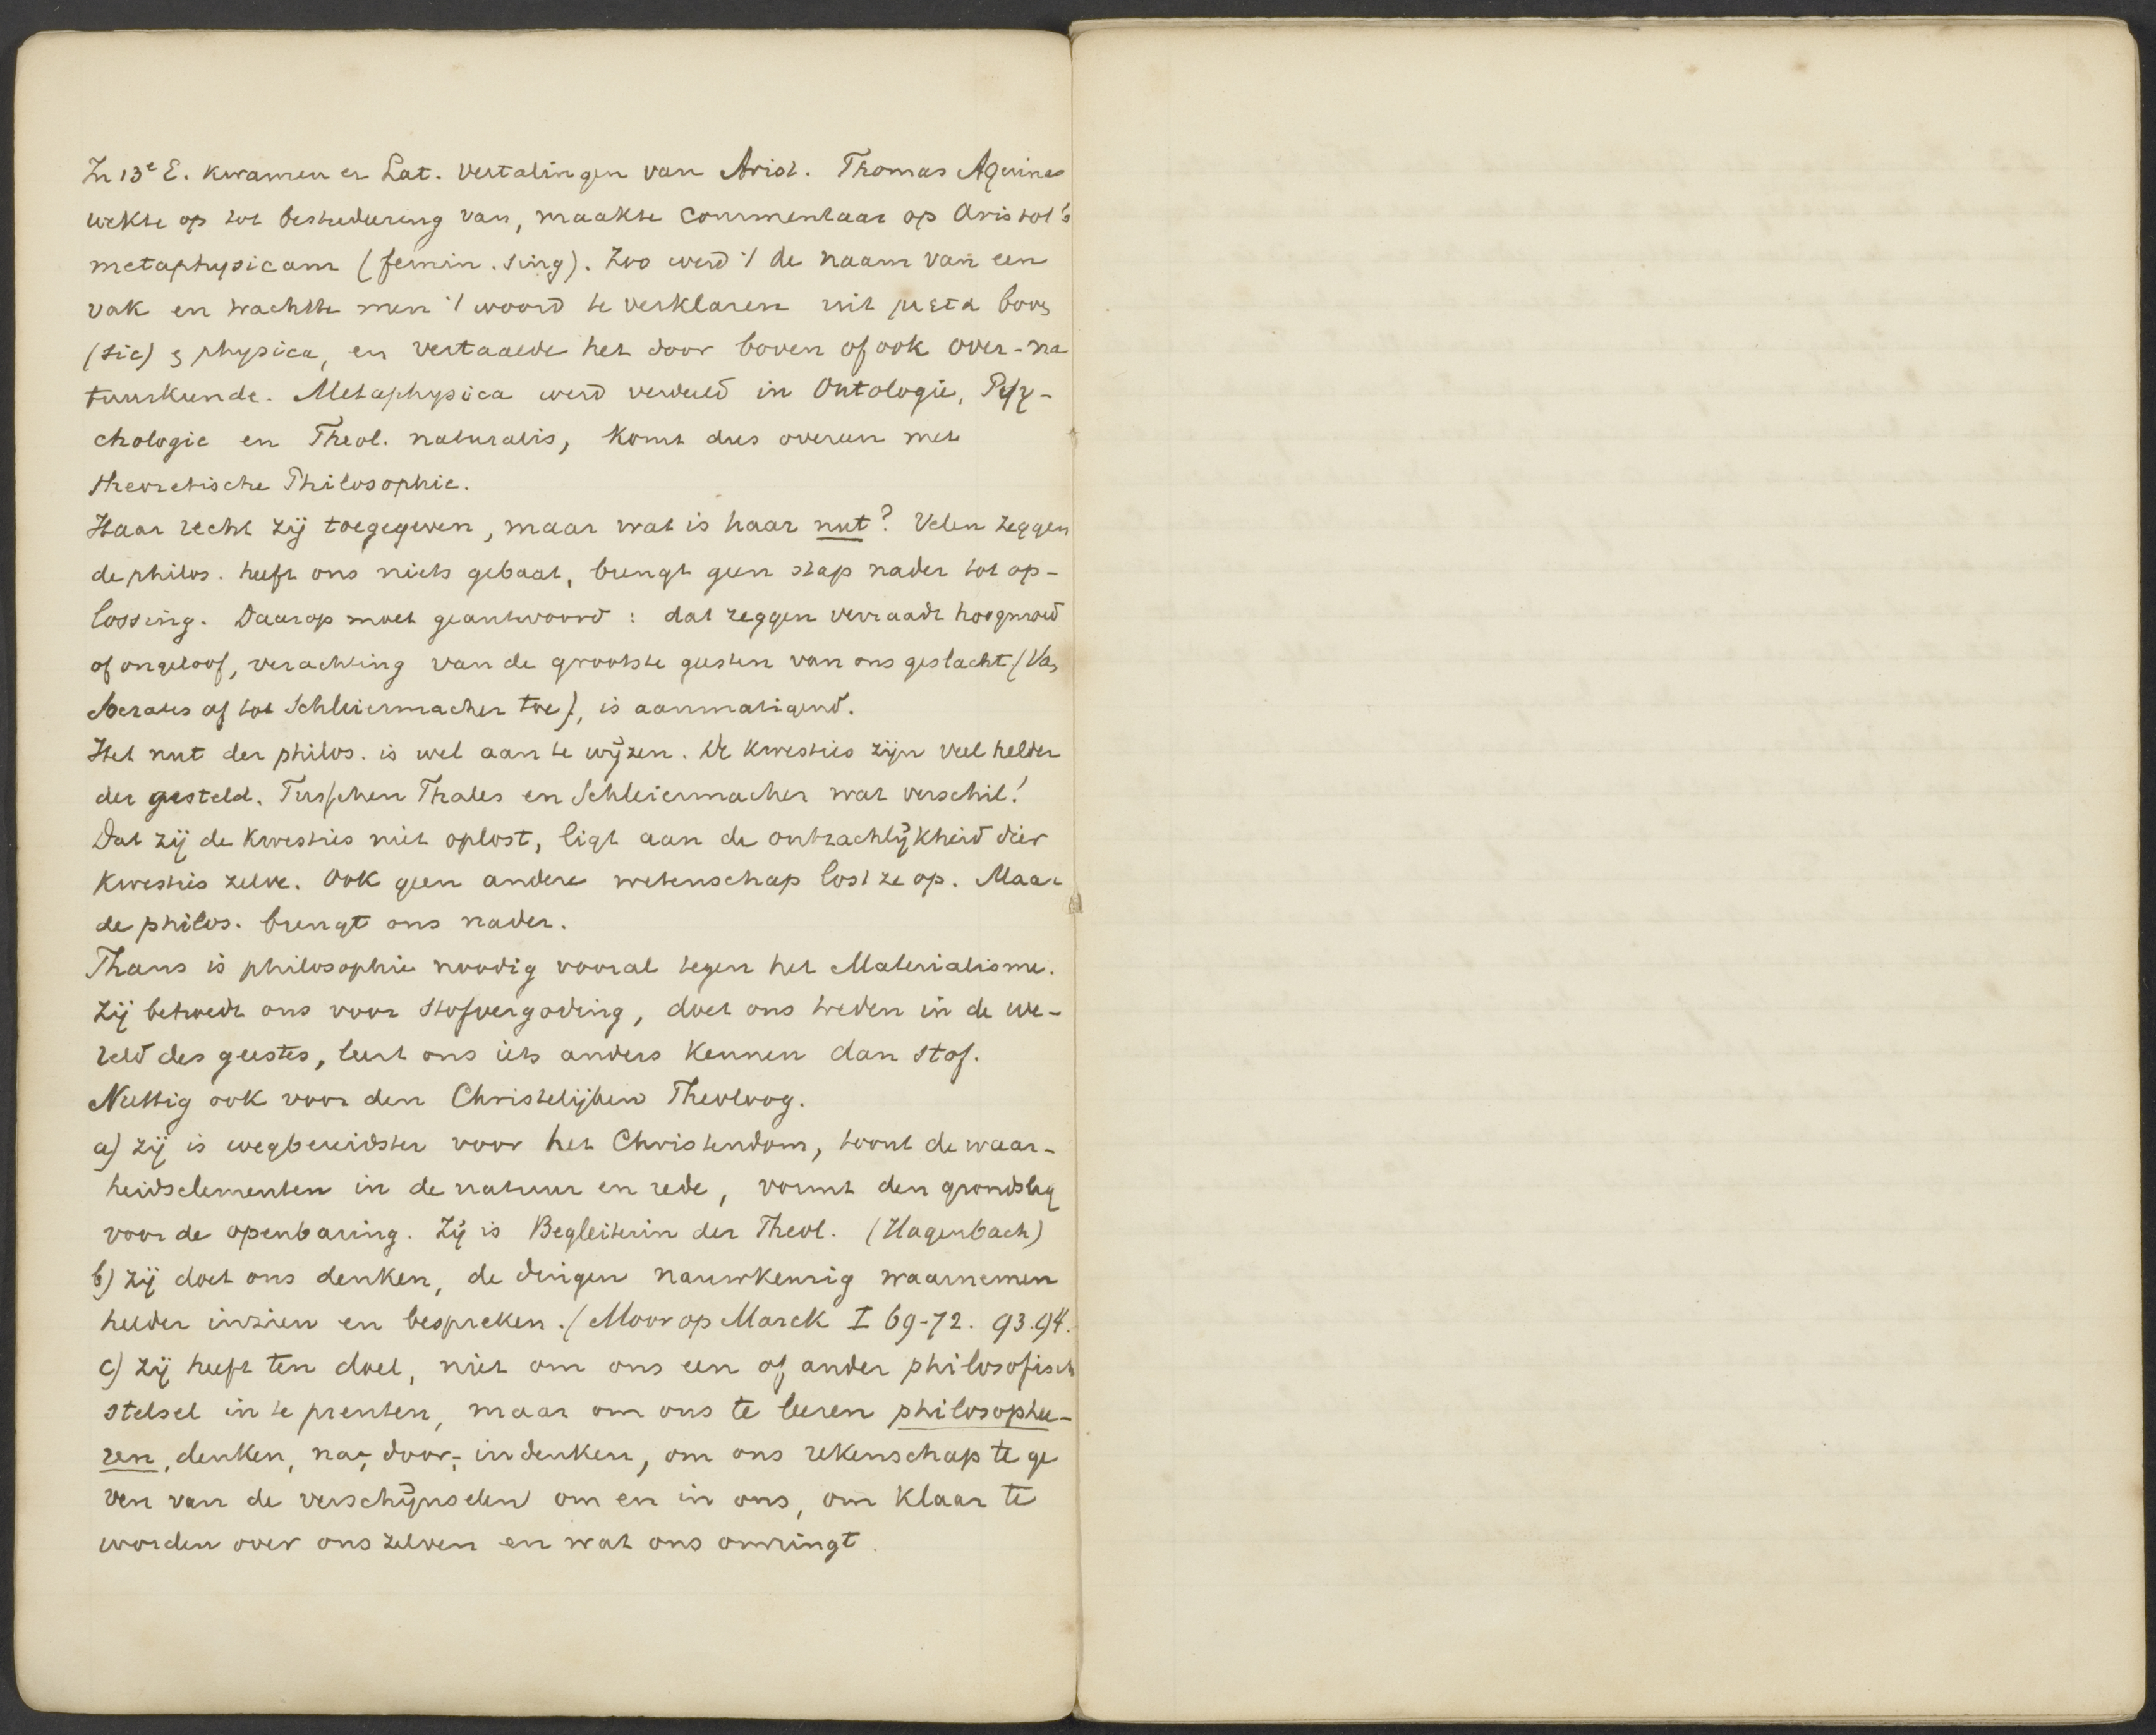 In 13e E. kwamen er Lat. vertalingen van Arist. Thomas Aquinas
wekte op tot bestudeering van, maakte commentaar op Aristot's
metaphysicam (femin. sing). Zoo werd 't de naam van een
vak en trachtte men 't woord te verklaren uit μετα boven
(sic) & physica, en vertaalde het door boven of ook over-na
tuurkunde. Metaphysica werd verdeeld in Ontologie, Psy-
chologie en Theol. naturalis, komt dus overeen met
theoretische Philosophie.
Haar recht zij toegegeven, maar wat is haar nut? Velen zeggen
de philos. heeft ons niets gebaat, brengt geen stap nader tot op-
lossing. Daarop moet geantwoord: dat zeggen verraadt hoogmoed
of ongeloof, verachting van de grootste geesten van ons geslacht (Van
Socrates af tot Schleiermacher toe), is aanmatigend.
Het nut der philos. is wel aan te wijzen. De kwesties zijn veel helder
der gesteld. Tusschen Thales en Schleiermacher wat verschil!
Dat zij de kwesties niet oplost, ligt aan de ontzachlijkheid dier
kwesties zelve. Ook geen andere wetenschap lost ze op. Maar
de philos. brengt ons nader.
Thans is philosophie noodig vooral tegen het Materialisme.
Zij behoedt ons voor stofvergoding, doet ons treden in de we-
reld des geestes, leert ons iets anders kennen dan stof.
Nuttig ook voor den Christelijken Theoloog.
a) zij is wegbereidster voor het Christendom, toont de waar-
heidselementen in de natuur en rede, vormt den grondslag
voor de openbaring. Zij is Begleiterin der Theol. (Hagenbach)
b) zij doet ons denken, de dingen nauwkeurig waarnemen
helder inzien en bespreken. (Moor op Marck I 69-72. 93.94.
c) zij heeft ten doel, niet om ons een of ander philosofisch
stelsel in te prenten, maar om ons te leeren philosophee-
ren, denken, na-, door-, indenken, om ons rekenschap te ge
ven van de verschijnselen om en in ons, om klaar te
worden over ons zelven en wat ons omringt.